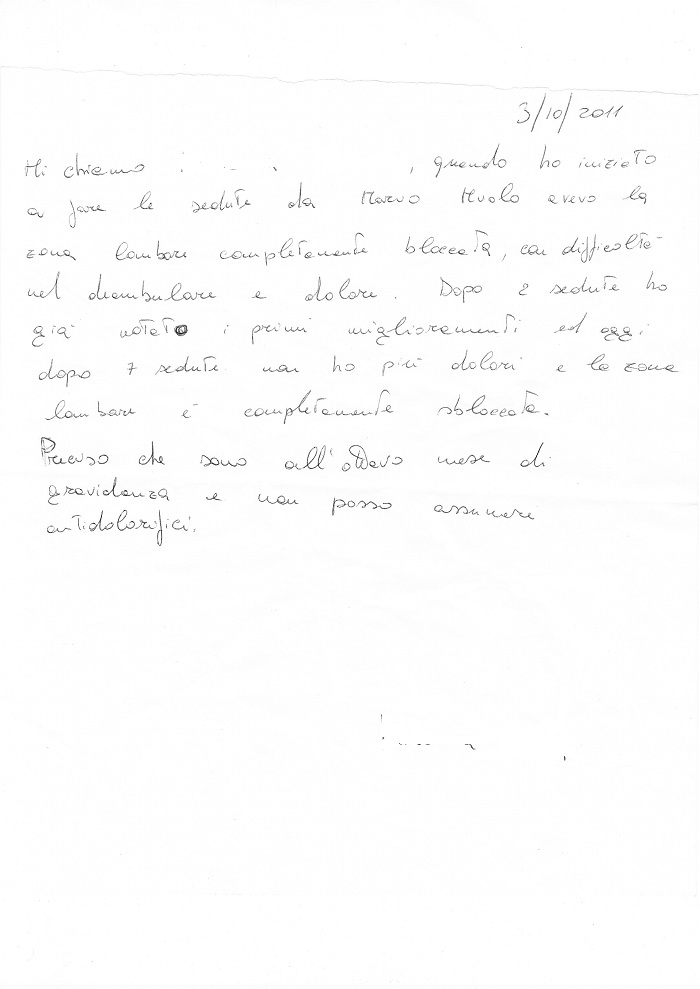 3/10/2011
Mi chiamo , quando ho iniziato
a fare le sedute da Marco Muolo avevo la
zona lombare completamente bloccata, con difficoltà
nel deambulare e dolore. Dopo 2 sedute ho
già notato i primi miglioramenti ed oggi
dopo 7 sedute non ho più dolori e la zona
lombare è completamente sbloccata.
Preciso che sono all'ottavo mese di
gravidanza e non posso assumere
antidolorifici.